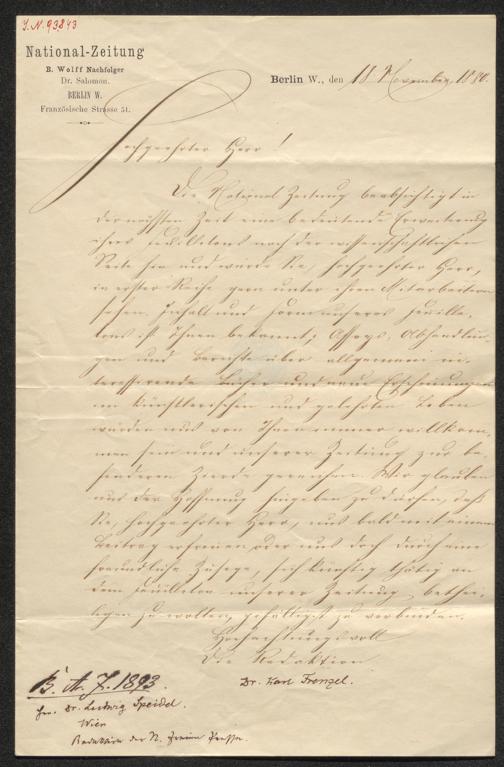 J. N. 93843
National-Zeitung
B. Wolff Nachfolger
Dr. Salomon.
BERLIN W.
Französische Strasse 51.
Berlin W., den 18 November 1880.
Hochgeehrter Herr!
Die National Zeitung beabsichtigt in
der nächsten Zeit eine bedeutende Erweiterung
ihres Feuilletons nach der wissenschaftlichen
Seite hin und würde Sie, hochgeehrter Herr,
in erster Reihe gern unter ihren Mitarbeitern
sehen. Inhalt und Form unseres Feuille-
tons ist Ihnen bekannt; Essays, Abhandlun-
gen und Berichte über allgemein in-
teressirende Bücher und neue Erscheinungen
im künstlerischen und gelehrten Leben
würden uns von Ihnen immer willkom-
men sein und unserer Zeitung zur be-
sonderen Zierde gereichen. Wir glauben
uns der Hoffnung hingeben zu dürfen, daß
Sie, hochgeehrter Herr, uns bald mit einem
Beitrag erfreuen oder uns doch durch eine
freundliche Zusage, sich künftig thätig an
dem Feuilleton unserer Zeitung bethei-
ligen zu wollen, gefälligst zu verbinden.
Hochachtungsvoll
Die Redaktion
Dr. Karl Frenzel.
B. A. J. 1893.
Hrn. Dr. Ludwig Speidel.
Wien
Redaktion der N. Freien Presse.